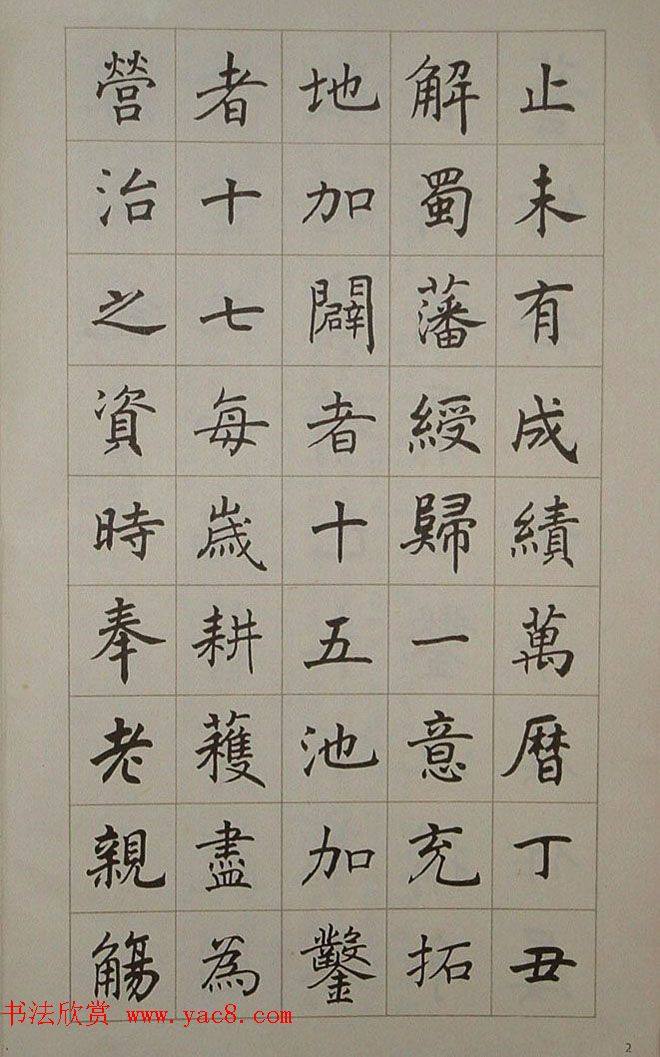 止未有成績萬曆丁丑
解蜀藩綬歸一意充拓
地加闢者十五池加鑿
者十七每歲耕穫盡為
營治之資時奉老親觴
书法欣赏 www.yac8.com
2